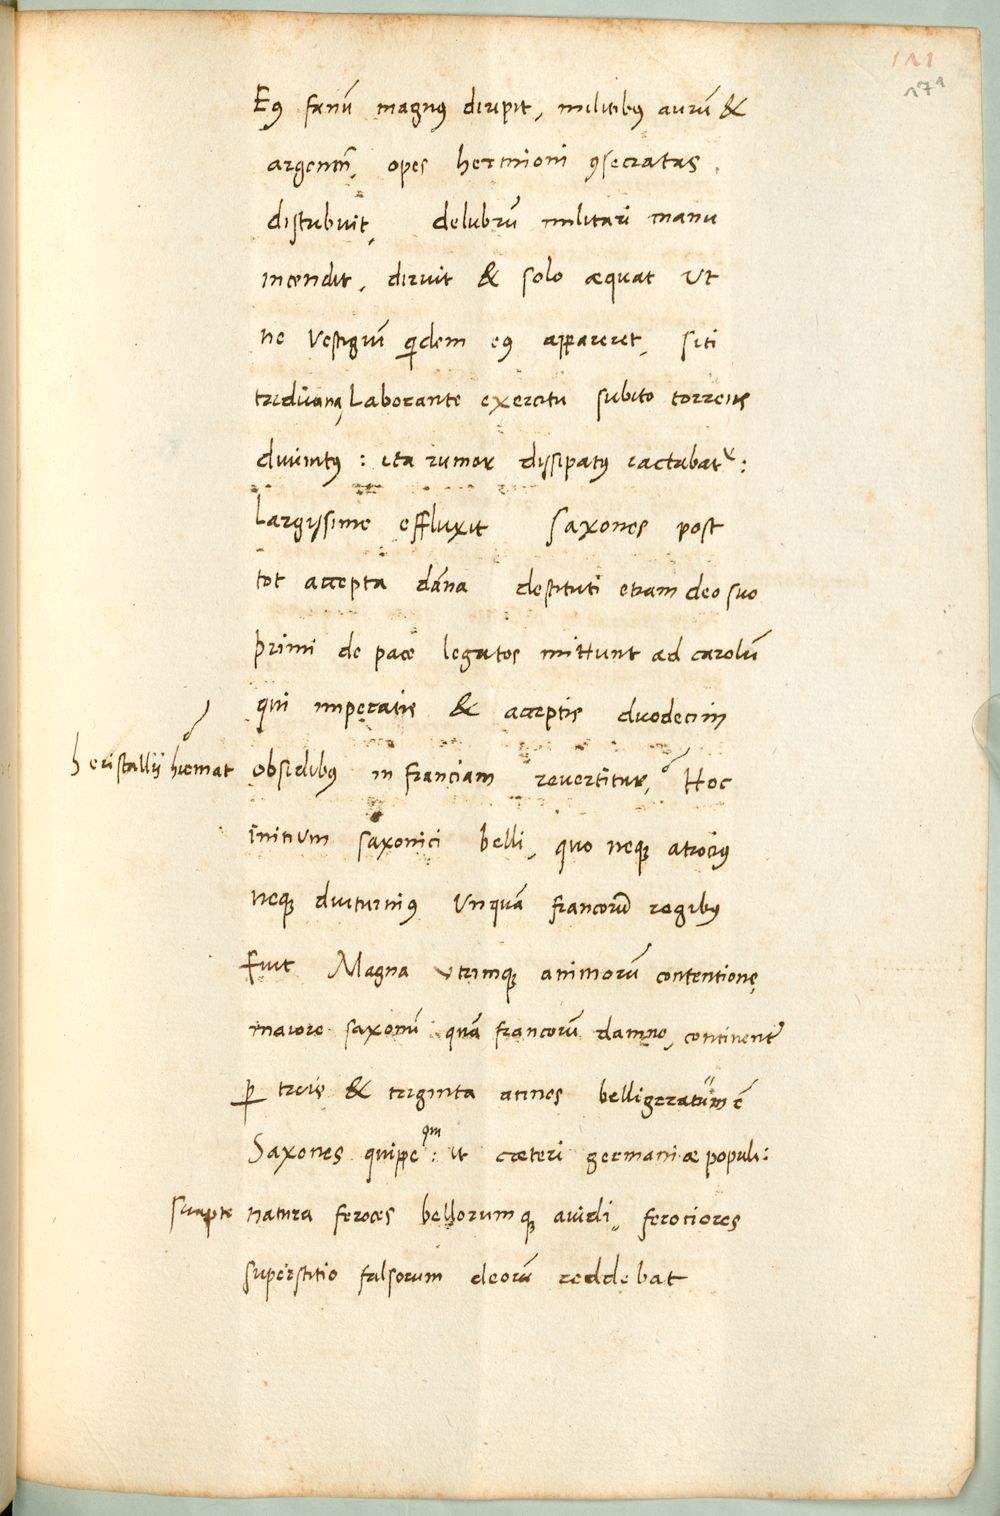 Eꝰ fanū magnꝰ diripit, militibꝰ aurū &
argentū, opes hermioni ꝯsecratas,
distribuit, delubrū militari manu
incendit, diruit & solo æquat Ut
ne vestigiū qidem eꝰ appareret, siti
triduana, Laborante exercitu subito torrens
diuinitꝰ : ita rumor dissipatꝰ iactabatᵘ :
Largissime effluxit Saxones post
tot accepta dāna destituti etiam deo suo
primi de pace legatos mittunt ad carolū
qui imperatis & acceptis duodecim
heristallii hiemat
obsidibus in franciam reuertitur, Hoc
initium saxonici belli, quo neqꝫ atrociꝰ
neqꝫ diuturniꝰ Unquā francorū regibꝰ
Fuit Magna utrimqꝫ animorū contentione,
maiore saxonū quā francorū damno, continent
ꝑ treis & triginta annos belligeratūm ē
Saxones quippe qm : ut cæteri germaniæ populi :
suapte natura feroces bellorumqꝫ auidi, ferociores
superstitio falsorum deorū reddebat
111
171